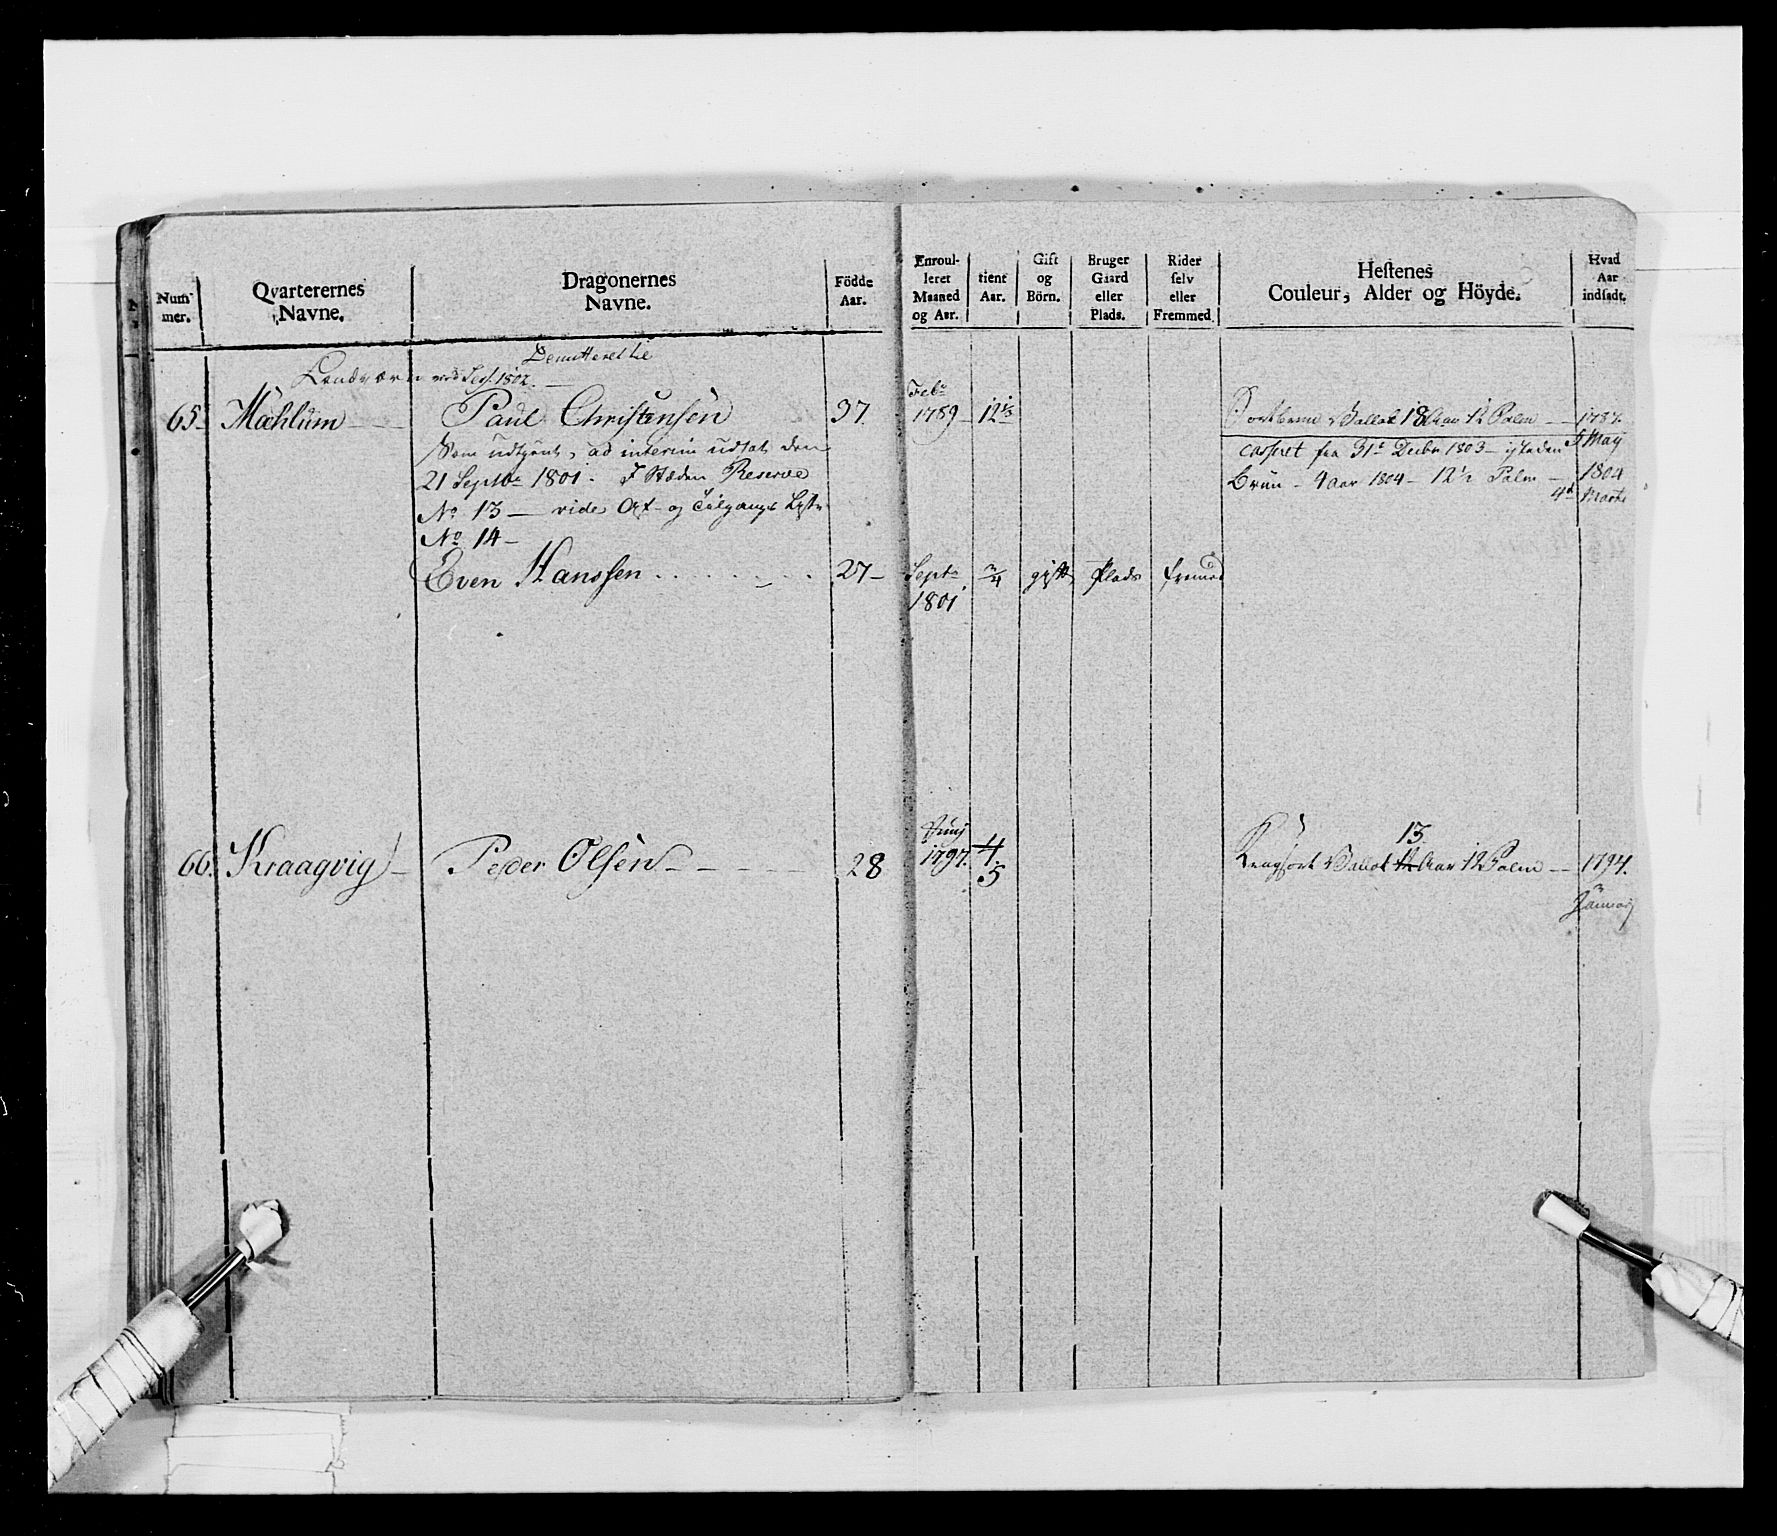 Num-
mer.
Qvarterernes
Navne.
Dragonernes
Navne.
Födde
Aar.
Enroul-
leret
Maaned
og Aar.
tient
Aar.
Gift
og
Börn.
Bruger
Gaard
eller
Plads.
Rider
selv
eller
Fremmed.
Hestenes
Couleur, Alder og Höyde.
Hvad
Aar
indsadt.
Landværn ved Sess. 1802.
65 Mæhlum Paul Christensen 37 Feb. 1789 12 1/3
Vallak 18 Aar 12 Palm 1787
Som udtjent, ad interim udsat den
21 Septbr 1801. I Stæden Reserve
No 13 vide Af- og Tilgangs Lyste
No 14
casseret fra 31 Decbr 1803 5 May
Brun 4 aar 1804 12 1/2 Palm 1804
4 Marts
Even Hanssen 27 Septr 1801 gift Plads fremed
66. Kraagvig Peder Olsen 28 Junj 1797. 4 5
13
Vallak Aar 12 Palm 1794.
Januarij